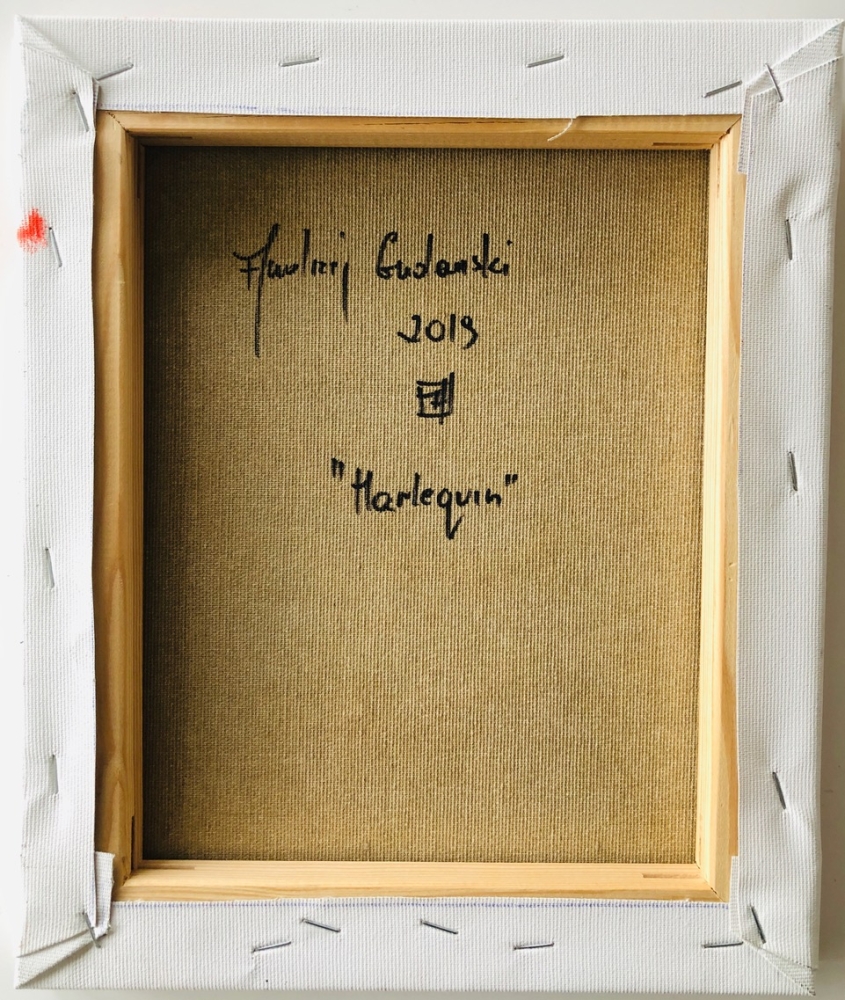 Andrzej Gudanski
2019
"Harlequin"